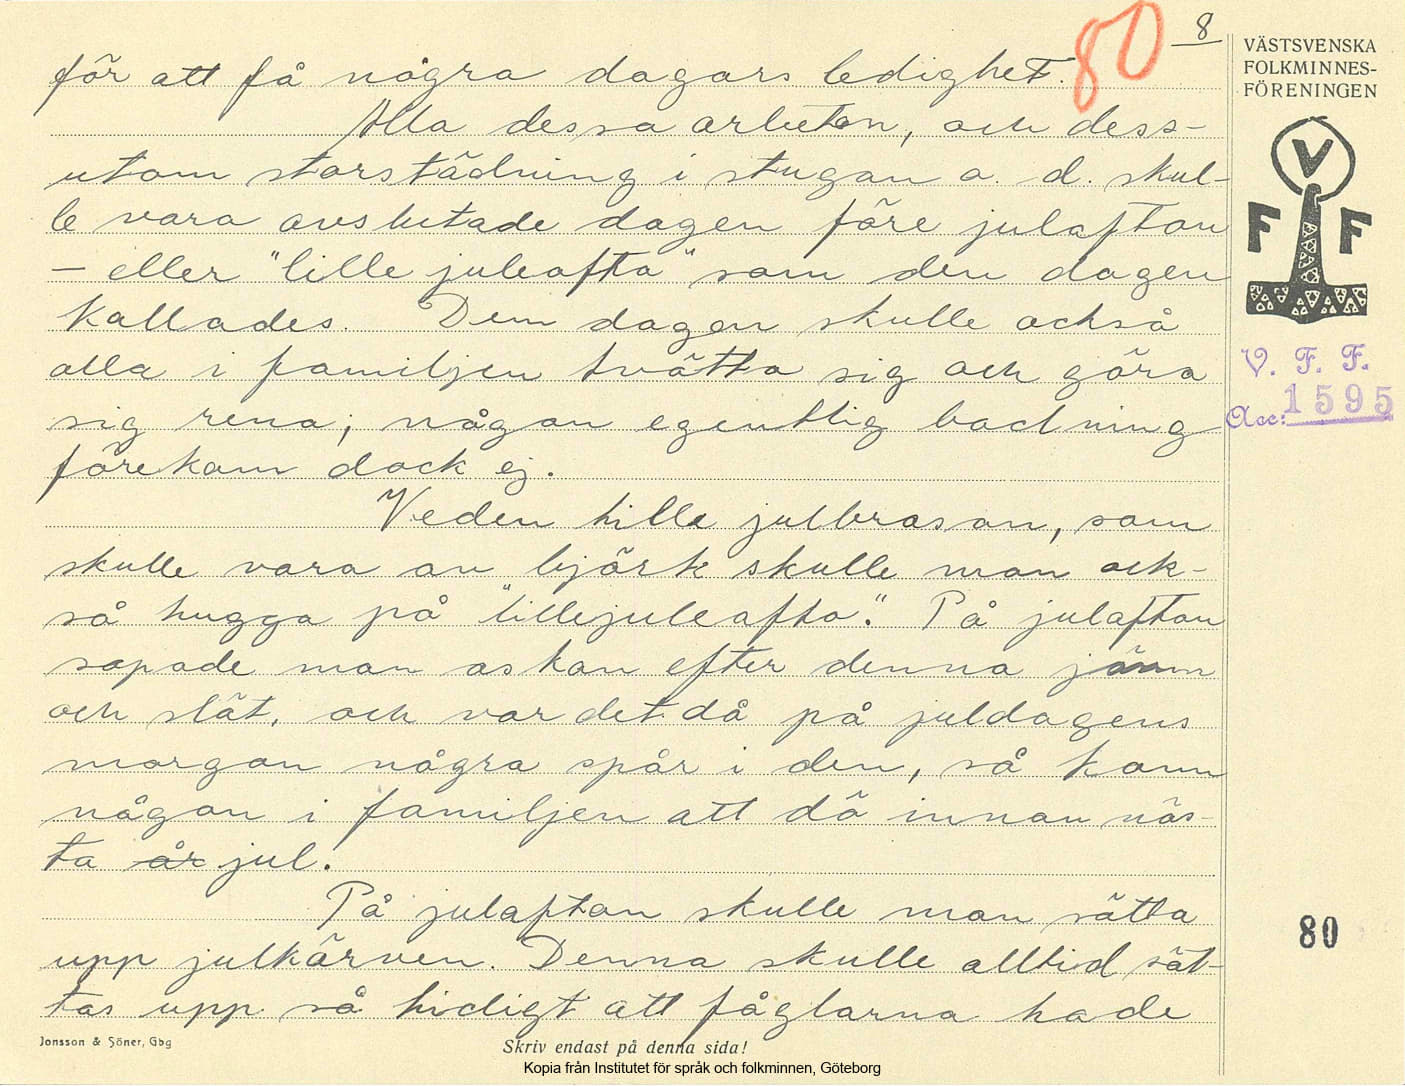 80 8
för att få några dagars ledighet.
Alla dessa arbeten, och dess-
utom storstädning i stugan o. d. skul-
le vara avslutade dagen före julafton
— eller "lille juleafta" som den dagen
kallades. Dem dagen skulle också
alla i familjen tvätta sig och göra
sig rena; någon egentlig badning
förekom dock ej.
Veden till julbrasan, som
skulle vara av björk skulle man ock-
så hugga på "lillejuleafta". På julafton
sopade man askan efter denna jämn
och slät, och var det då på juldagens
morgon några spår i den, så kom
någon i familjen att dö innan näs-
ta år jul.
På julafton skulle man sätta
upp julkärven. Denna skulle alltid sät-
tas upp så tidigt att fåglarna hade
VÄSTSVENSKA
FOLKMINNES-
FÖRENINGEN
V
F F
V. F. F.
Acc: 1595
80
Jonsson & Söner, Gbg
Skriv endast på denna sida!
Kopia från Institutet för språk och folkminnen, Göteborg